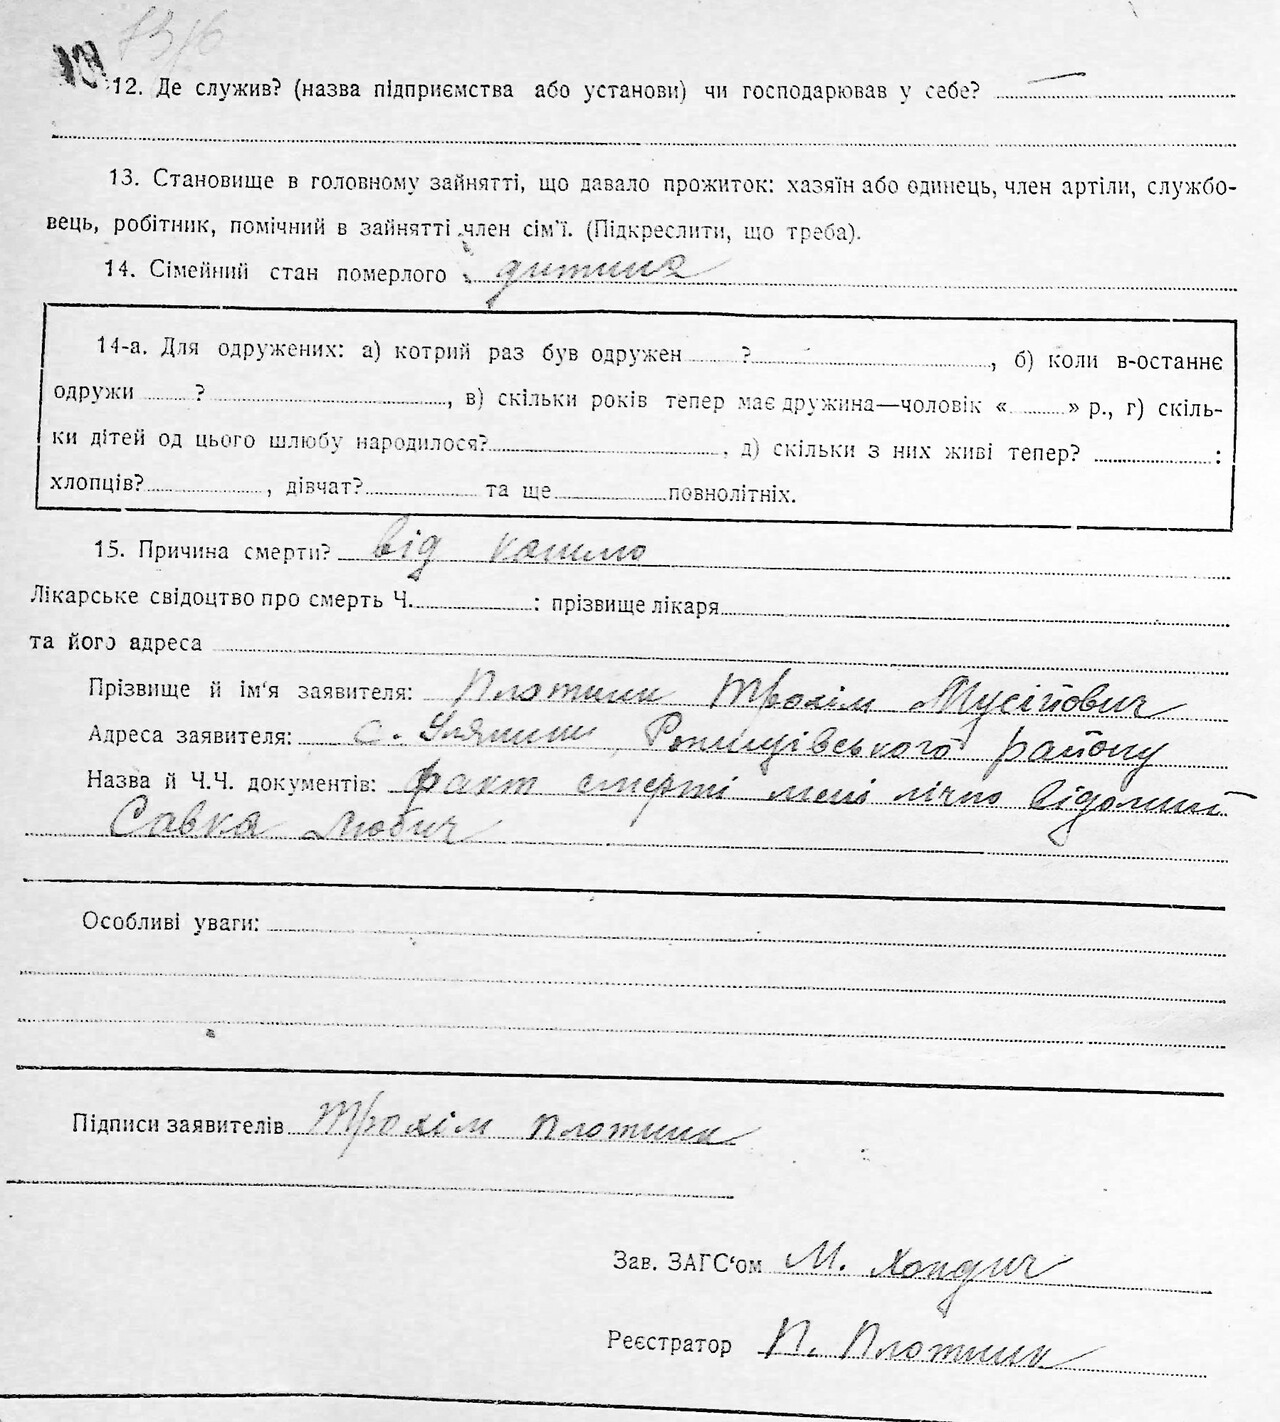 1376
12. Де служив? (назва підприємства або установи) чи господарював у себе? —
13. Становище в головному зайнятті, що давало прожиток: хазяїн або одинець, член артіли, службо-
вець, робітник, помічний в зайнятті член сім'ї. (Підкреслити, що треба).
14. Сімейний стан померлого дитина
14-а. Для одружених: а) котрий раз був одружен ? , б) коли в-останнє
одружи ? , в) скільки років тепер має дружина—чоловік « » р., г) скіль-
ки дітей од цього шлюбу народилося? , д) скільки з них живі тепер? :
хлопців? , дівчат? та ще повнолітніх.
15. Причина смерти? від кашлю
Лікарське свідоцтво про смерть Ч. : прізвище лікаря
та його адреса
Прізвище й ім'я заявителя: Плотник Трохім Мусійович
Адреса заявителя: с. Уляники, Рожищівського району
Назва й Ч.Ч. документів: факт смерті мені лічно відомий
Савка
Особливі уваги:
Підписи заявителів Трохім Плотник
Зав. ЗАГС'ом М.
Реєстратор П. Плотник